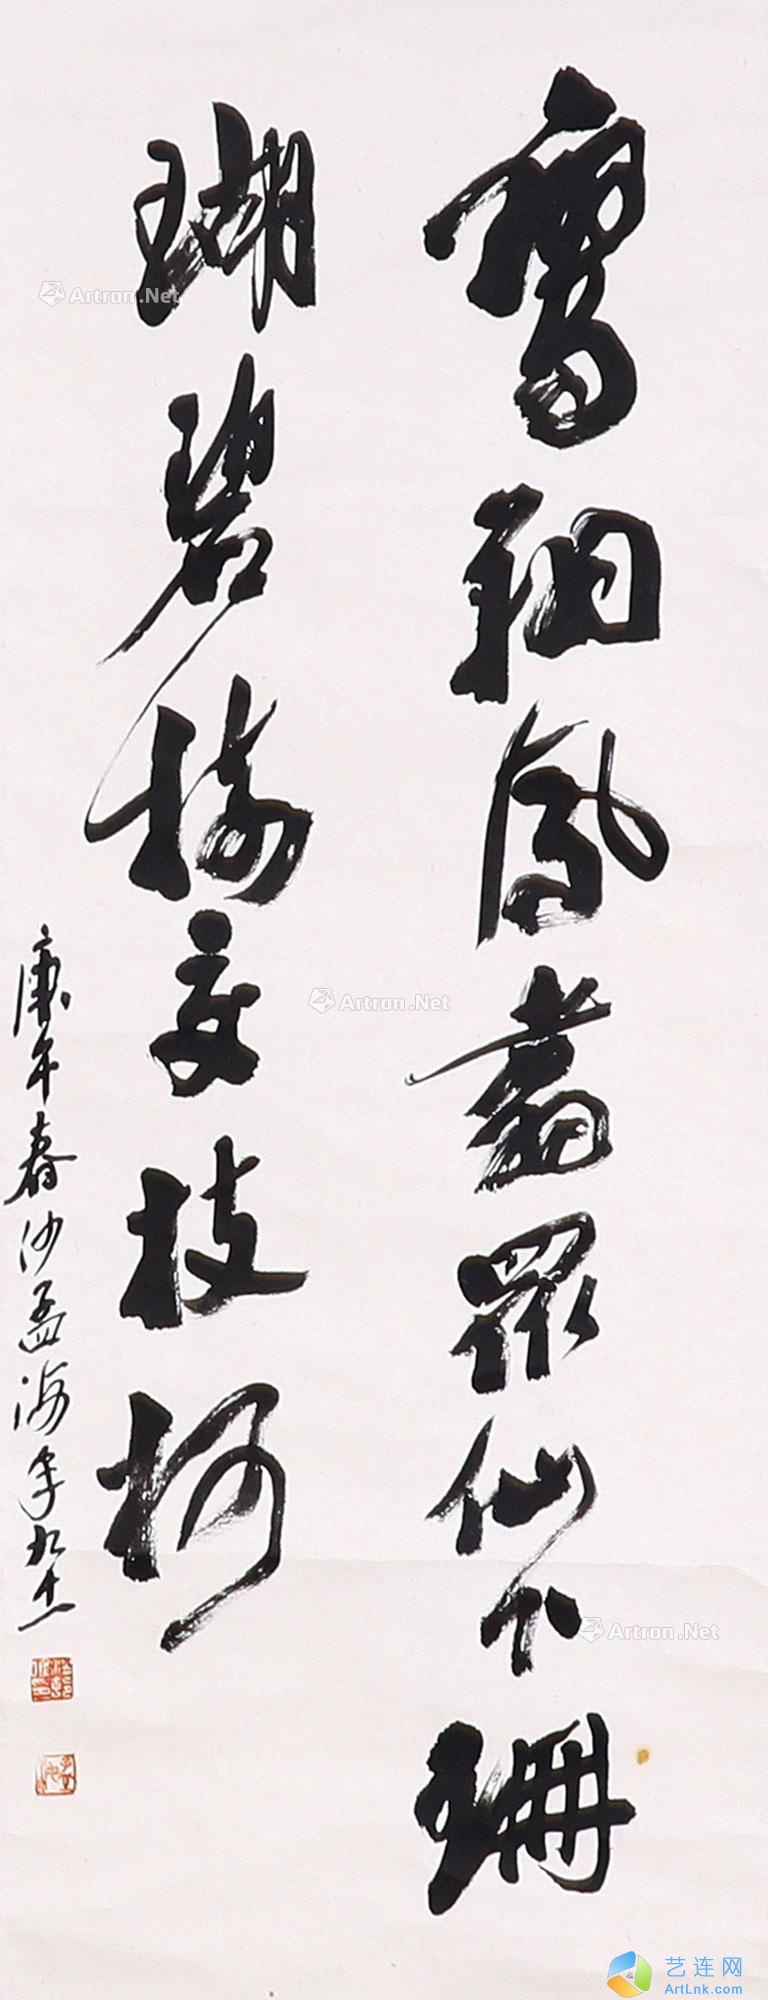 鸞翔鳳翥眾仙下珊
瑚碧樹交枝柯
庚午春沙孟海年九十一
Artron.Net
Artron.Net
Artron.Net
艺连网
ArtLnk.com